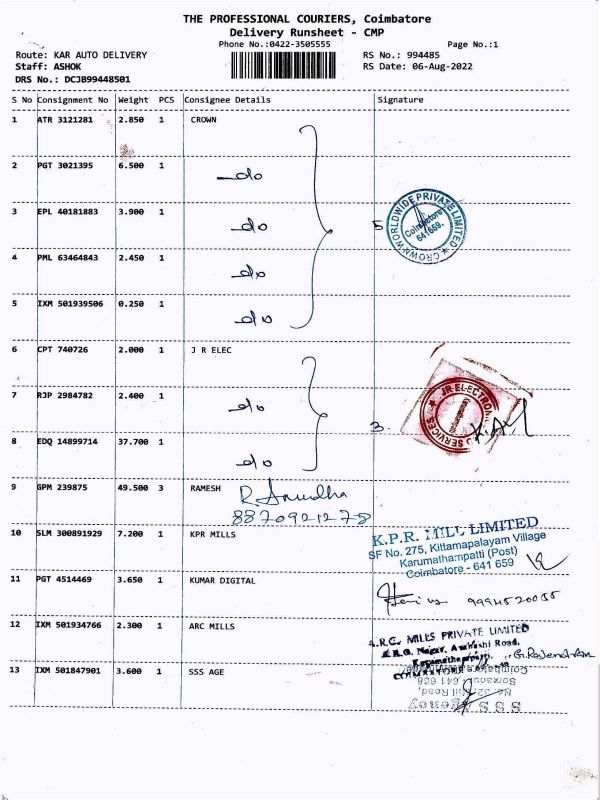 THE PROFESSIONAL COURIERS, Coimbatore
Delivery Runsheet - CMP
Phone No.:0422-3505555 Page No.:1
Route: KAR AUTO DELIVERY RS No.: 994485
Staff: ASHOK RS Date: 06-Aug-2022
DRS No.: DCJB99448501
S No Consignment No Weight PCS Consignee Details Signature
1 ATR 3121281 2.850 1 CROWN
2 PGT 3021395 6.500 1 do
3 EPL 40181883 3.900 1 do 5
CROWN WORLDWIDE PRIVATE LIMITED
Coimbatore
641 659.
4 PML 63464843 2.450 1 do
5 IXM 501939506 0.250 1 do
6 CPT 740726 2.000 1 J R ELEC
7 RJP 2984782 2.400 1 do
JR ELECTRONIC SERVICES
8 EDQ 14899714 37.700 1 do 3.
9 GPM 239875 49.500 3 RAMESH R. Anudha
8870921278
10 SLM 300891929 7.200 1 KPR MILLS
K.P.R. MILL LIMITED
SF No. 275, Kittamapalayam Village
Karumathampatti (Post)
Coimbatore - 641 659
11 PGT 4514469 3.650 1 KUMAR DIGITAL 9994520055
12 IXM 501934766 2.300 1 ARC MILLS
A.R.C. MILLS PRIVATE LIMITED
Nagar, Avinashi Road,
G. Rajendran
13 IXM 501847901 3.600 1 SSS AGE
S S S Agency
Coimbatore